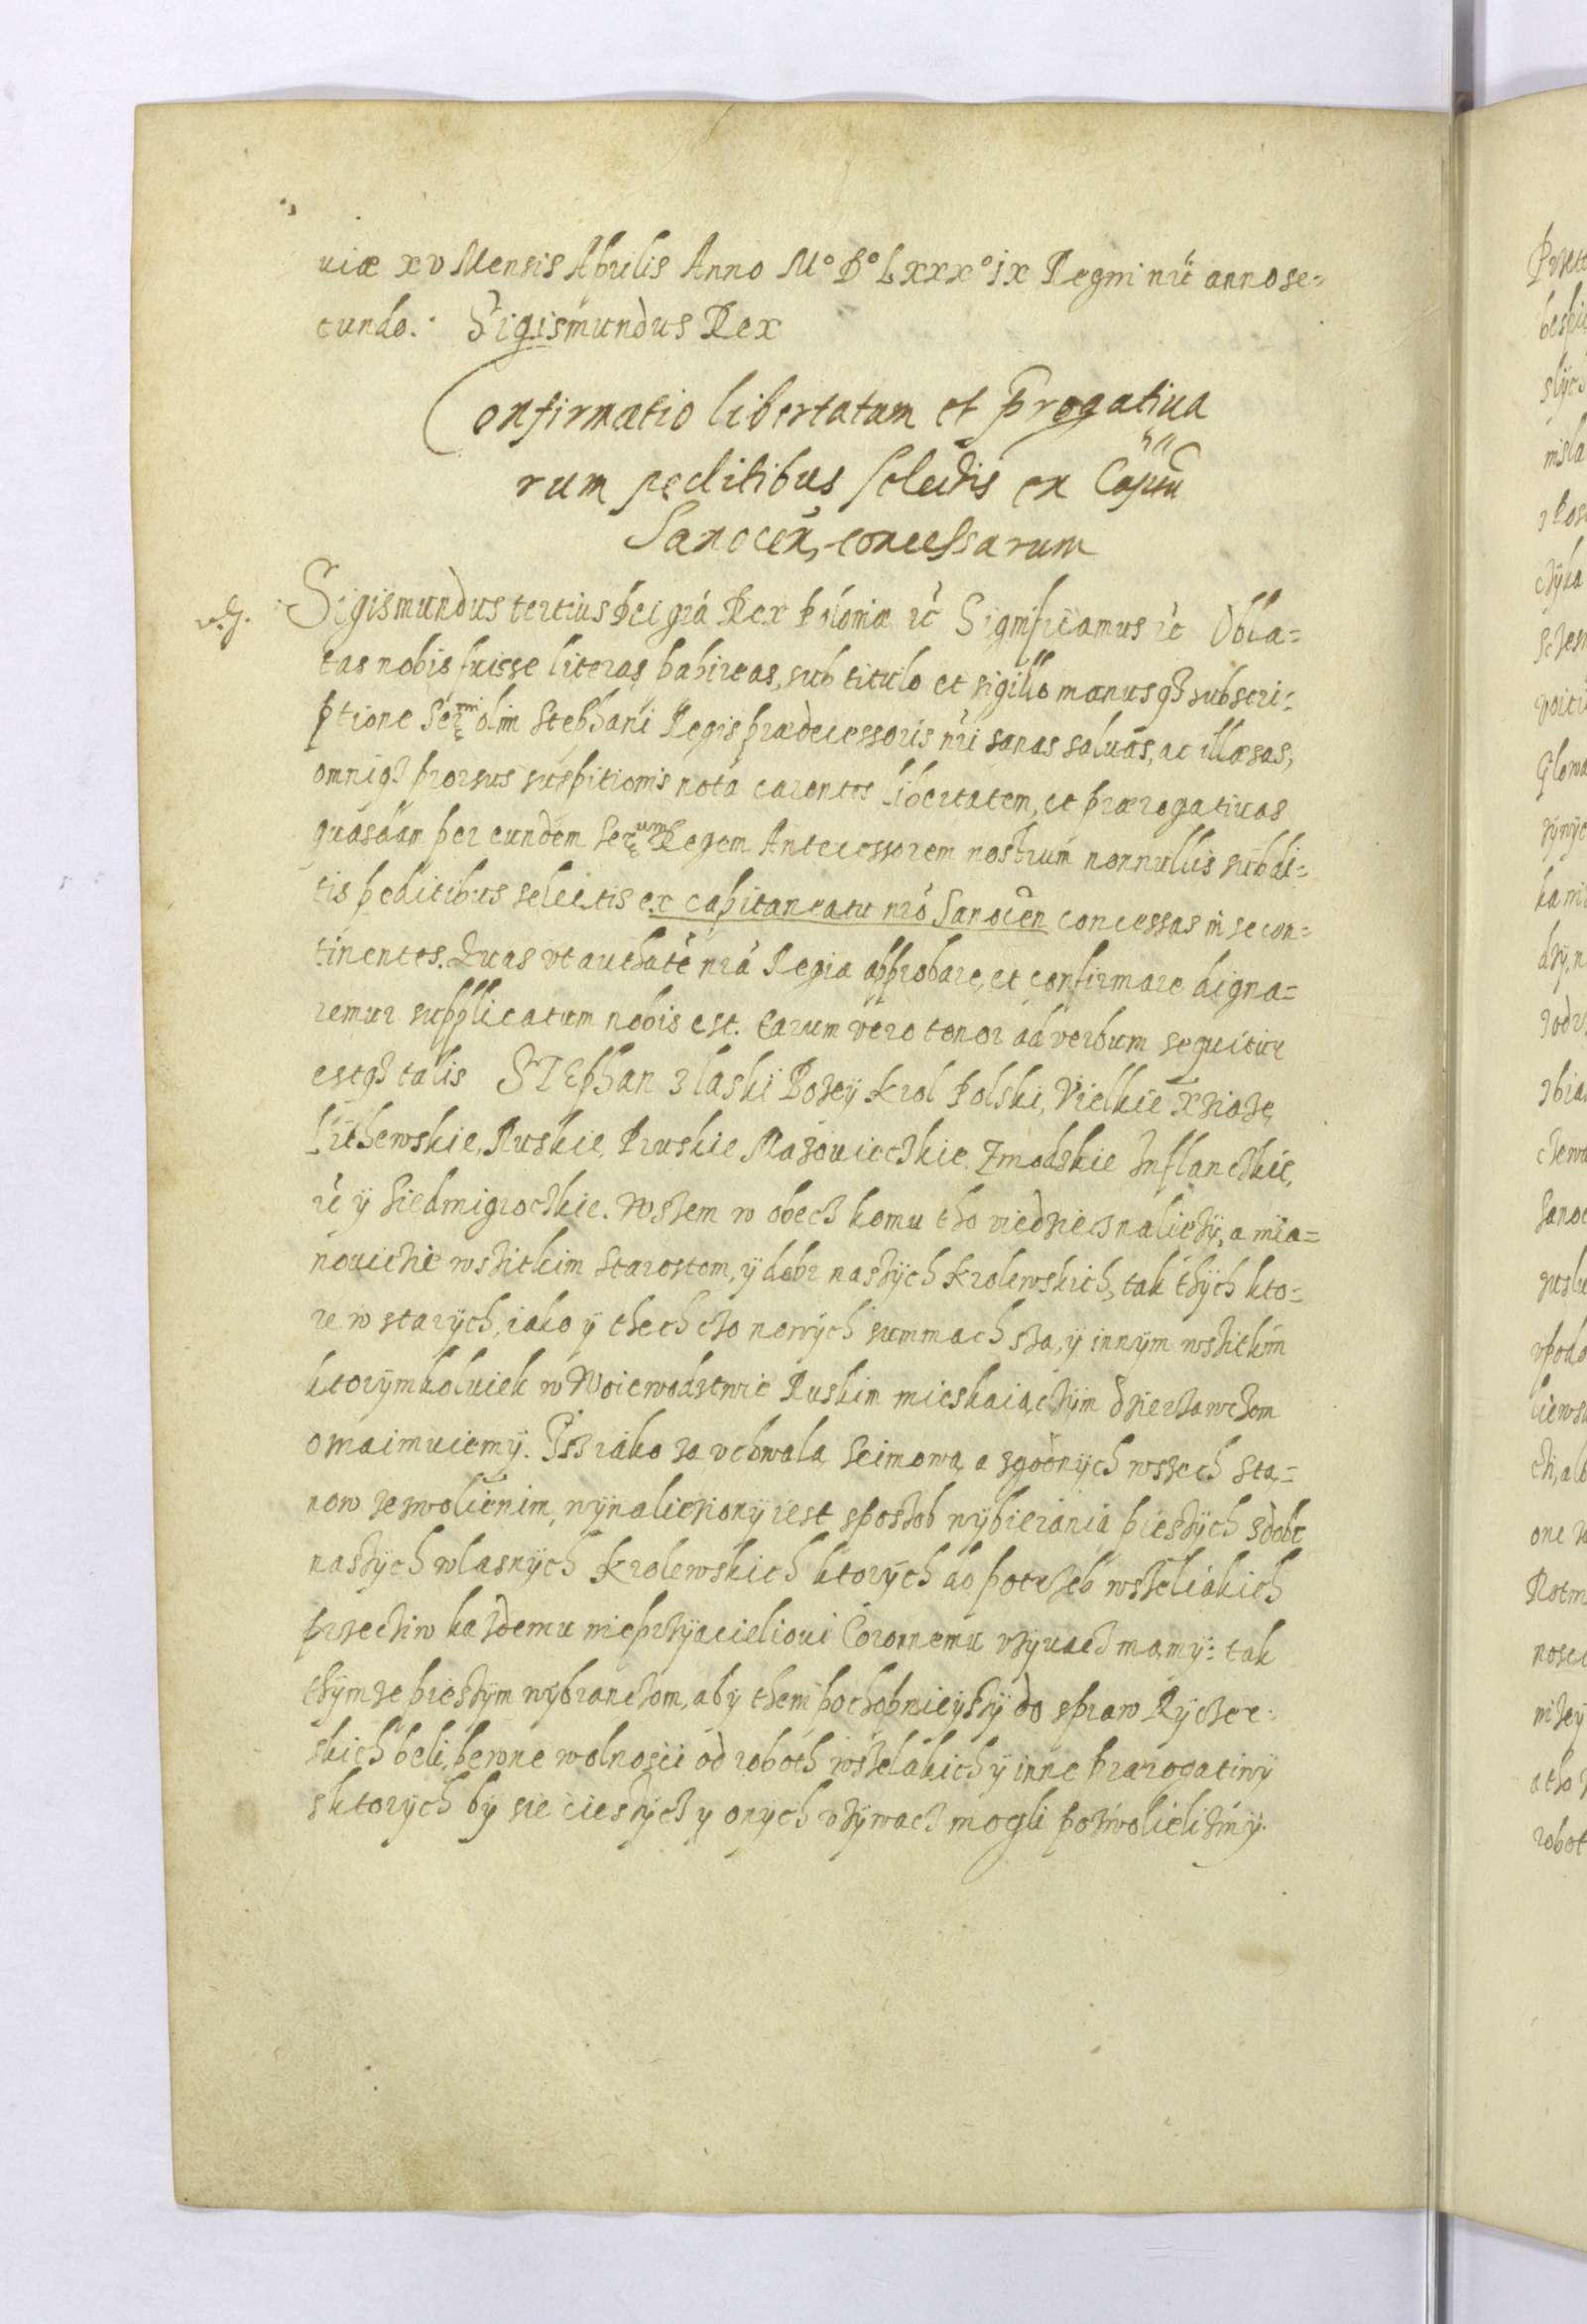 uiæ xv Mensis Aprilis Anno M° D° Lxxx° ix Regni nri anno se=
cundo. Sigismundus Rex
Confirmatio libertatum et prrogatiua
rum peditibus selectis ex Capitu
Sanocen, concessarum
Sigismundus tertius Dei gra Rex Poloniæ rc Significamus rc Obla=
tas nobis fuisse literas papireas, sub titulo et sigillo manusq3 subscri=
ptione Ser mi olim Stephani Regis prædecessoris nri sanas saluas, ac illæsas,
omniq3 prorsus suspitionis nota carentes libertatem, et prærogatiuas
quasdam per eundem Ser um Regem Antecessorem nostrum nonnullis subdi=
tis peditibus selectis ex capitaneatu nro Sanocen concessas in se con=
tinentes. Quas vt authate nra Regia approbare, et confirmare digna=
remur supplicatum nobis est. Earum vero tenor ad verbum sequitur
estq3 talis STEphan z laski Bozey Krol Polski, Vielkie Xziaze
Lithewskie, Ruskie, Pruskie Mazouieczkie. Zmodskie Inflanczkie,
rc ÿ Siedmigroczkie. Wszem w obecz komu tho viedziecz naliezÿ, a mia=
nouicie wszitkim Starostom, ÿ dobr naszÿch Krolewskich, tak thÿch kto=
re w starÿch, iako ÿ thech czo nowÿch summach sza, ÿ innÿm wszitkim
ktorÿmkolviek w Woiewodztwie Ruskim mieskaiaczÿm dzierzawczom
oznaimuiemÿ. Isz iako za vchwala Seimowa, a zgodnÿch wszech Sta=
now zezwolienim, wÿnalieziony iest sposzob wÿbierania pieszÿch z dobr
naszÿch wlasnÿch Krolewskich ktorÿch do potrzeb wszeliakich
przecziw kazdemu nieprzÿiacieliovi Coronnemu vzÿuacz mamÿ: tak
thÿmze pieszÿm wÿbranczom, abÿ them pochopnieÿszÿ do spraw Rÿczer=
skich beli, pewne wolnosci od roboth wszelakich ÿ inne prærogatiwÿ
z ktorÿch bÿ sie cieszÿcz y onÿch vzÿwacz mogli pozwolielizmÿ.